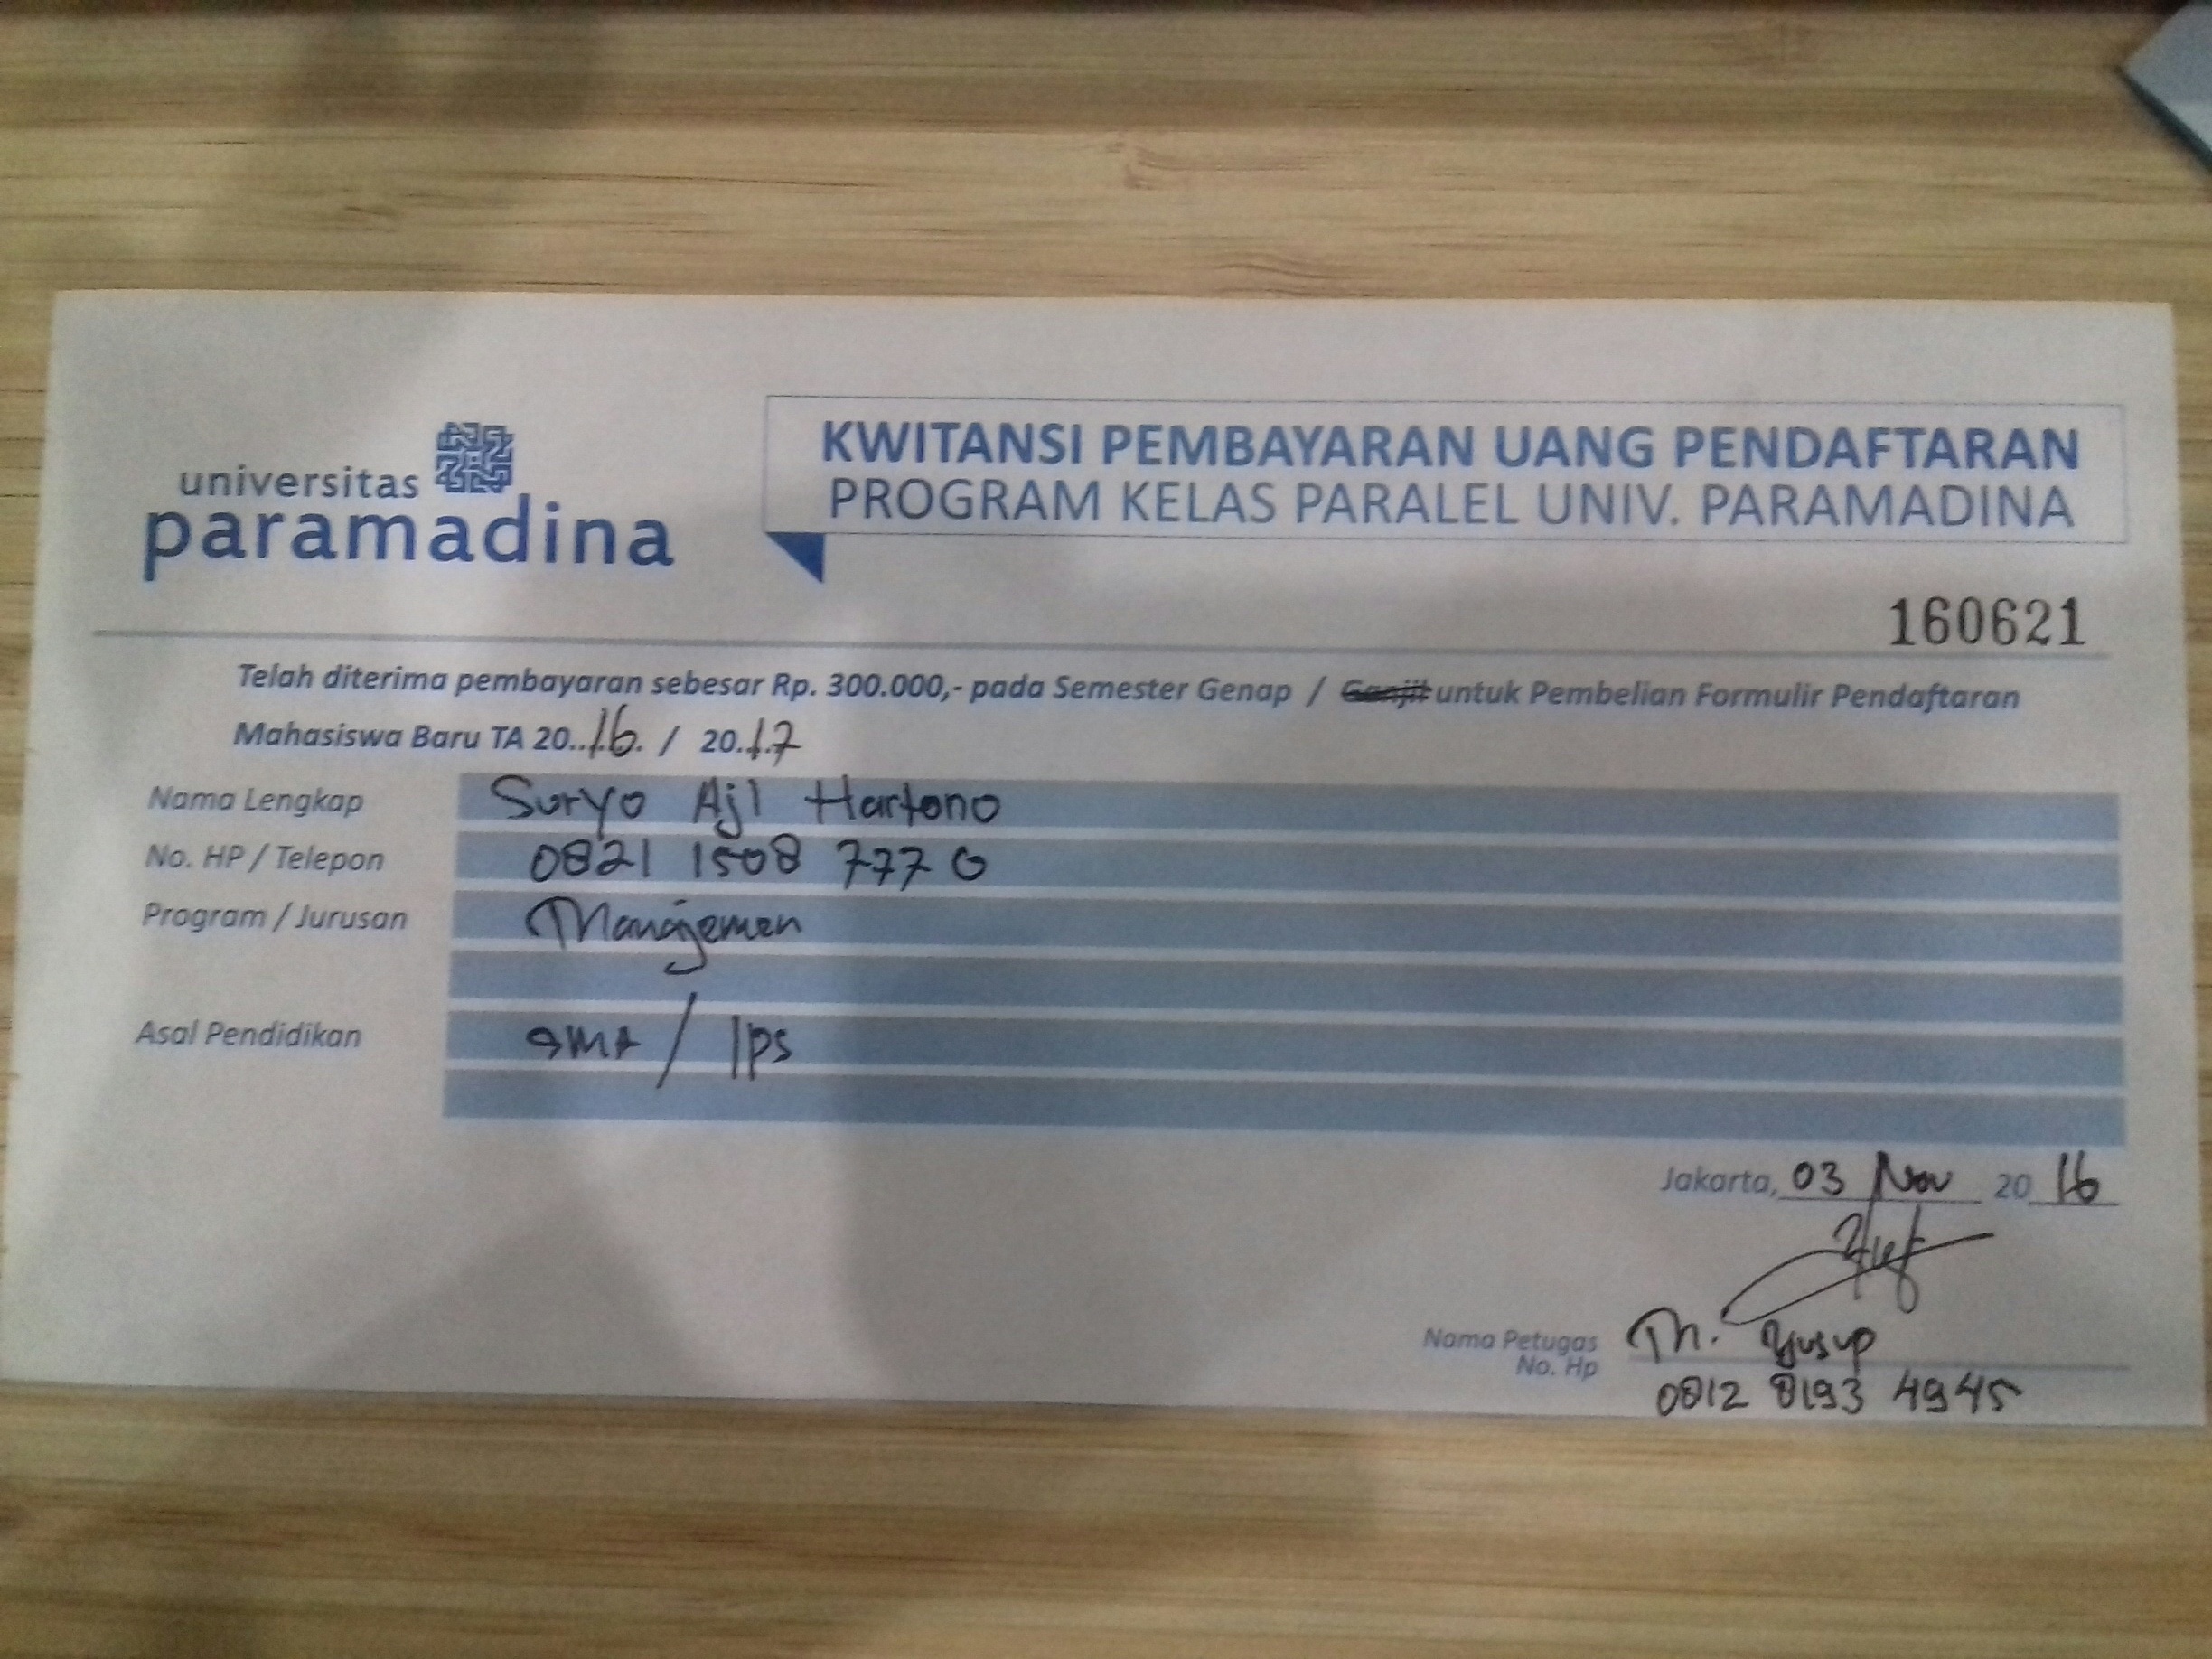 universitas
paramadina
KWITANSI PEMBAYARAN UANG PENDAFTARAN
PROGRAM KELAS PARALEL UNIV. PARAMADINA
160621
Telah diterima pembayaran sebesar Rp. 300.000,- pada Semester Genap / Ganjil untuk Pembelian Formulir Pendaftaran
Mahasiswa Baru TA 20..16. / 20.17
Nama Lengkap Suryo Aji Hartono
No. HP / Telepon 0821 1508 7770
Program / Jurusan Manajemen
Asal Pendidikan SMA / IPS
Jakarta, 03 Nov 20 16
Nama Petugas Th. Yusup
No. Hp 0812 8193 4945